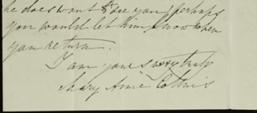 he does want to see you perhaps
you would let him know when
you return.
I am yours very truly
Mary Anne Collins